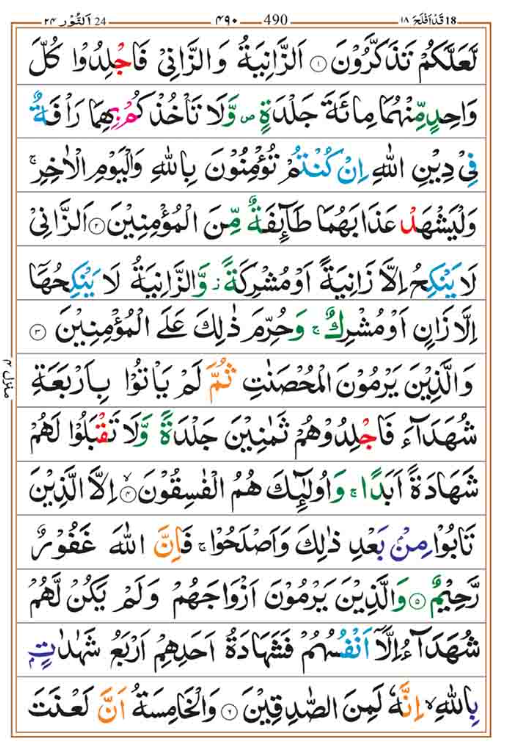 18 قَدْ اَفْلَحَ ١٨ ۴۹۰ 490 24 اَلنُّوْر ٢٤
لَّعَلَّكُمْ تَذَكَّرُوْنَ ۝١ اَلزَّانِيَةُ وَالزَّانِيْ فَاجْلِدُوْا كُلَّ
وَاحِدٍ مِّنْهُمَا مِائَةَ جَلْدَةٍ ۪ وَّلَا تَاْخُذْكُمْ بِهِمَا رَاْفَةٌ
فِيْ دِيْنِ اللّٰهِ اِنْ كُنْتُمْ تُؤْمِنُوْنَ بِاللّٰهِ وَالْيَوْمِ الْاٰخِرِ ۚ
وَلْيَشْهَدْ عَذَابَهُمَا طَآئِفَةٌ مِّنَ الْمُؤْمِنِيْنَ ۝٢ اَلزَّانِيْ
لَا يَنْكِحُ اِلَّا زَانِيَةً اَوْ مُشْرِكَةً ؗ وَّالزَّانِيَةُ لَا يَنْكِحُهَاۤ
اِلَّا زَانٍ اَوْ مُشْرِكٌ ۚ وَحُرِّمَ ذٰلِكَ عَلَي الْمُؤْمِنِيْنَ ۝٣
وَالَّذِيْنَ يَرْمُوْنَ الْمُحْصَنٰتِ ثُمَّ لَمْ يَاْتُوْا بِاَرْبَعَةِ
شُهَدَآءَ فَاجْلِدُوْهُمْ ثَمٰنِيْنَ جَلْدَةً وَّلَا تَقْبَلُوْا لَهُمْ
شَهَادَةً اَبَدًا ۚ وَاُولٰٓئِكَ هُمُ الْفٰسِقُوْنَ ۝٤ۙ اِلَّا الَّذِيْنَ
تَابُوْا مِنْۢ بَعْدِ ذٰلِكَ وَاَصْلَحُوْا ۚ فَاِنَّ اللّٰهَ غَفُوْرٌ
رَّحِيْمٌ ۝٥ وَالَّذِيْنَ يَرْمُوْنَ اَزْوَاجَهُمْ وَلَمْ يَكُنْ لَّهُمْ
شُهَدَآءُ اِلَّاۤ اَنْفُسُهُمْ فَشَهَادَةُ اَحَدِهِمْ اَرْبَعُ شَهٰدٰتٍۭ
بِاللّٰهِ ۙ اِنَّهٗ لَمِنَ الصّٰدِقِيْنَ ۝٦ وَالْخَامِسَةُ اَنَّ لَعْنَتَ
منزل ٤